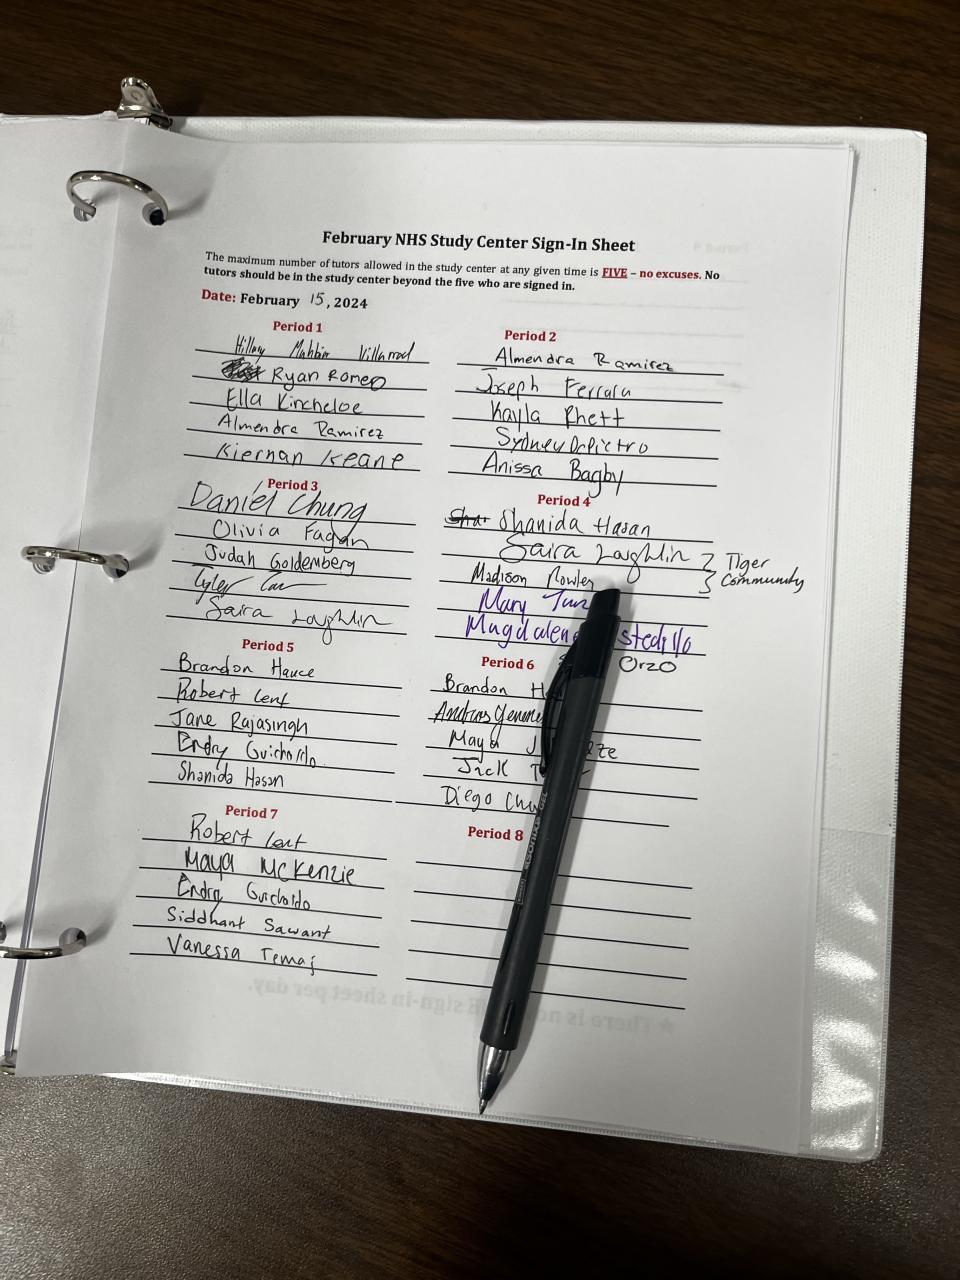 February NHS Study Center Sign-In Sheet
The maximum number of tutors allowed in the study center at any given time is FIVE – no excuses. No
tutors should be in the study center beyond the five who are signed in.
Date: February 15, 2024
Period 1
Hillary
Ryan Romeo
Ella Kincheloe
Almendra Ramirez
Kiernan Keane
Period 2
Almendra Ramirez
Joseph Ferrara
Kayla Rhett
Sydney DePietro
Anissa Bagby
Period 3
Daniel Chung
Olivia Fagan
Judah Goldemberg
Tyler
Saira Laughlin
Period 4
Shanida Hasan
Saira Laughlin
Madison
Mary
Tiger
Community
Period 5
Brandon Hauce
Robert Lent
Jane Rajasingh
Endry Guichardo
Shanida Hasan
Period 6
Orzo
Brandon
Maya
Jack
Diego
Period 7
Robert Lent
Maya McKenzie
Endry Guichardo
Siddhant Sawant
Vanessa Temaj
Period 8